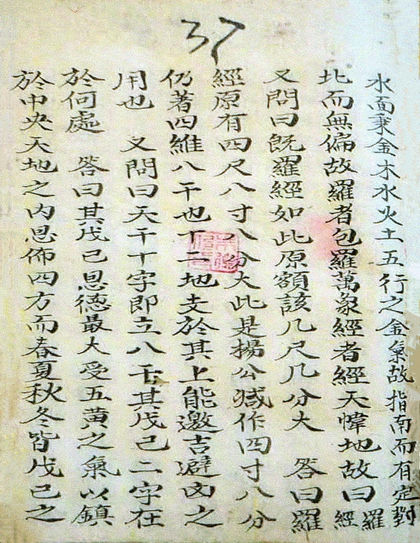 37
水面乗金木水火土五行之金氣故指南而有定對
北而無偏故羅者包羅萬象經者經天幃地故曰羅經
又問曰既羅經如此原額該几尺几分大 答曰羅
經原有四尺八寸八分大此是揚公减作四寸八分
仍著四維八干也二地支於其上能邀吉避凶之
用也 又問曰天干十字即立八其戊己二字在
於何處 答曰其戊己恩德最大受五黄之氣以鎮
於中央天地之内恩佈四方而春夏秋冬皆戊己之